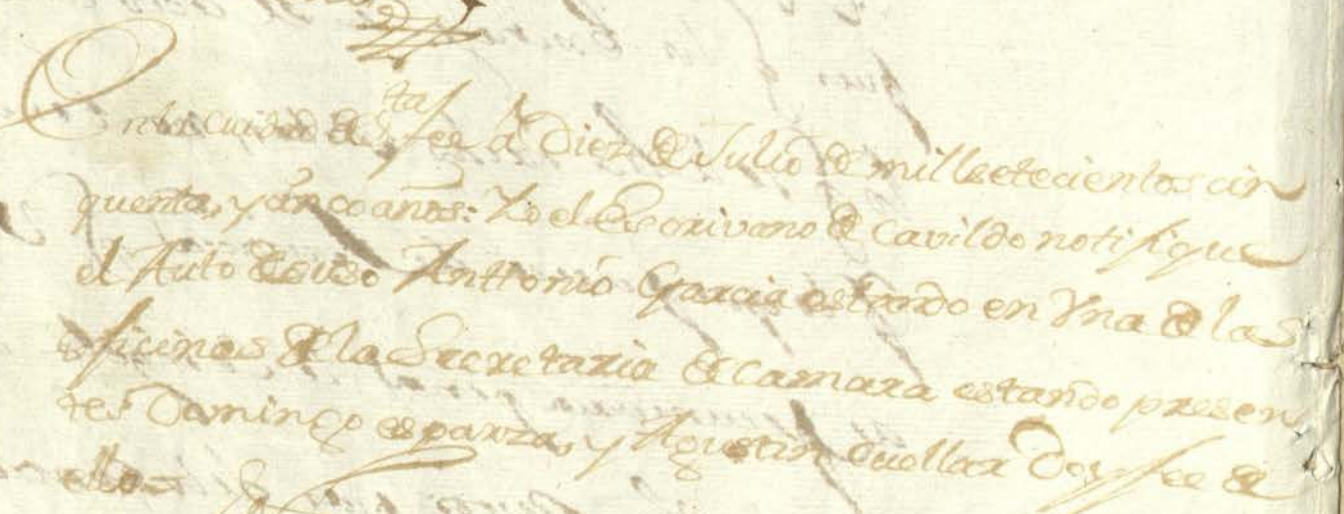 En la Ciudad de S.ta fee â Diez de Julio de mill setecientos cin
quenta, y cinco años: Yo el Escrivano de Cavildo notifique
el Auto Antonio Garcia estando en Vna de las
oficinas de la Secretaria de Camara estando presen
tes Domingo esparza, y Agustin Cuellar Doy fee de
ello=